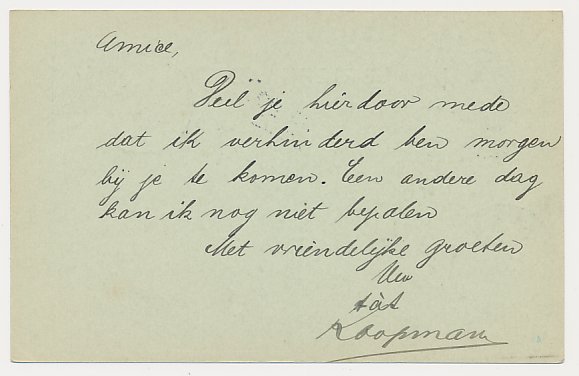 Amice,
Deel je hierdoor mede
dat ik verhinderd ben morgen
bij je te komen. Een andere dag
kan ik nog niet bepalen
Met vriendelijke groeten
Uw
tàt
Koopman